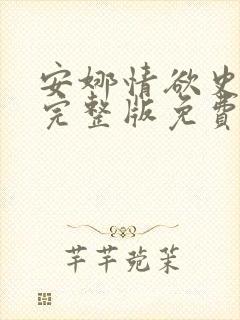 安娜情欲史
完整版免費
芊芊菀茉